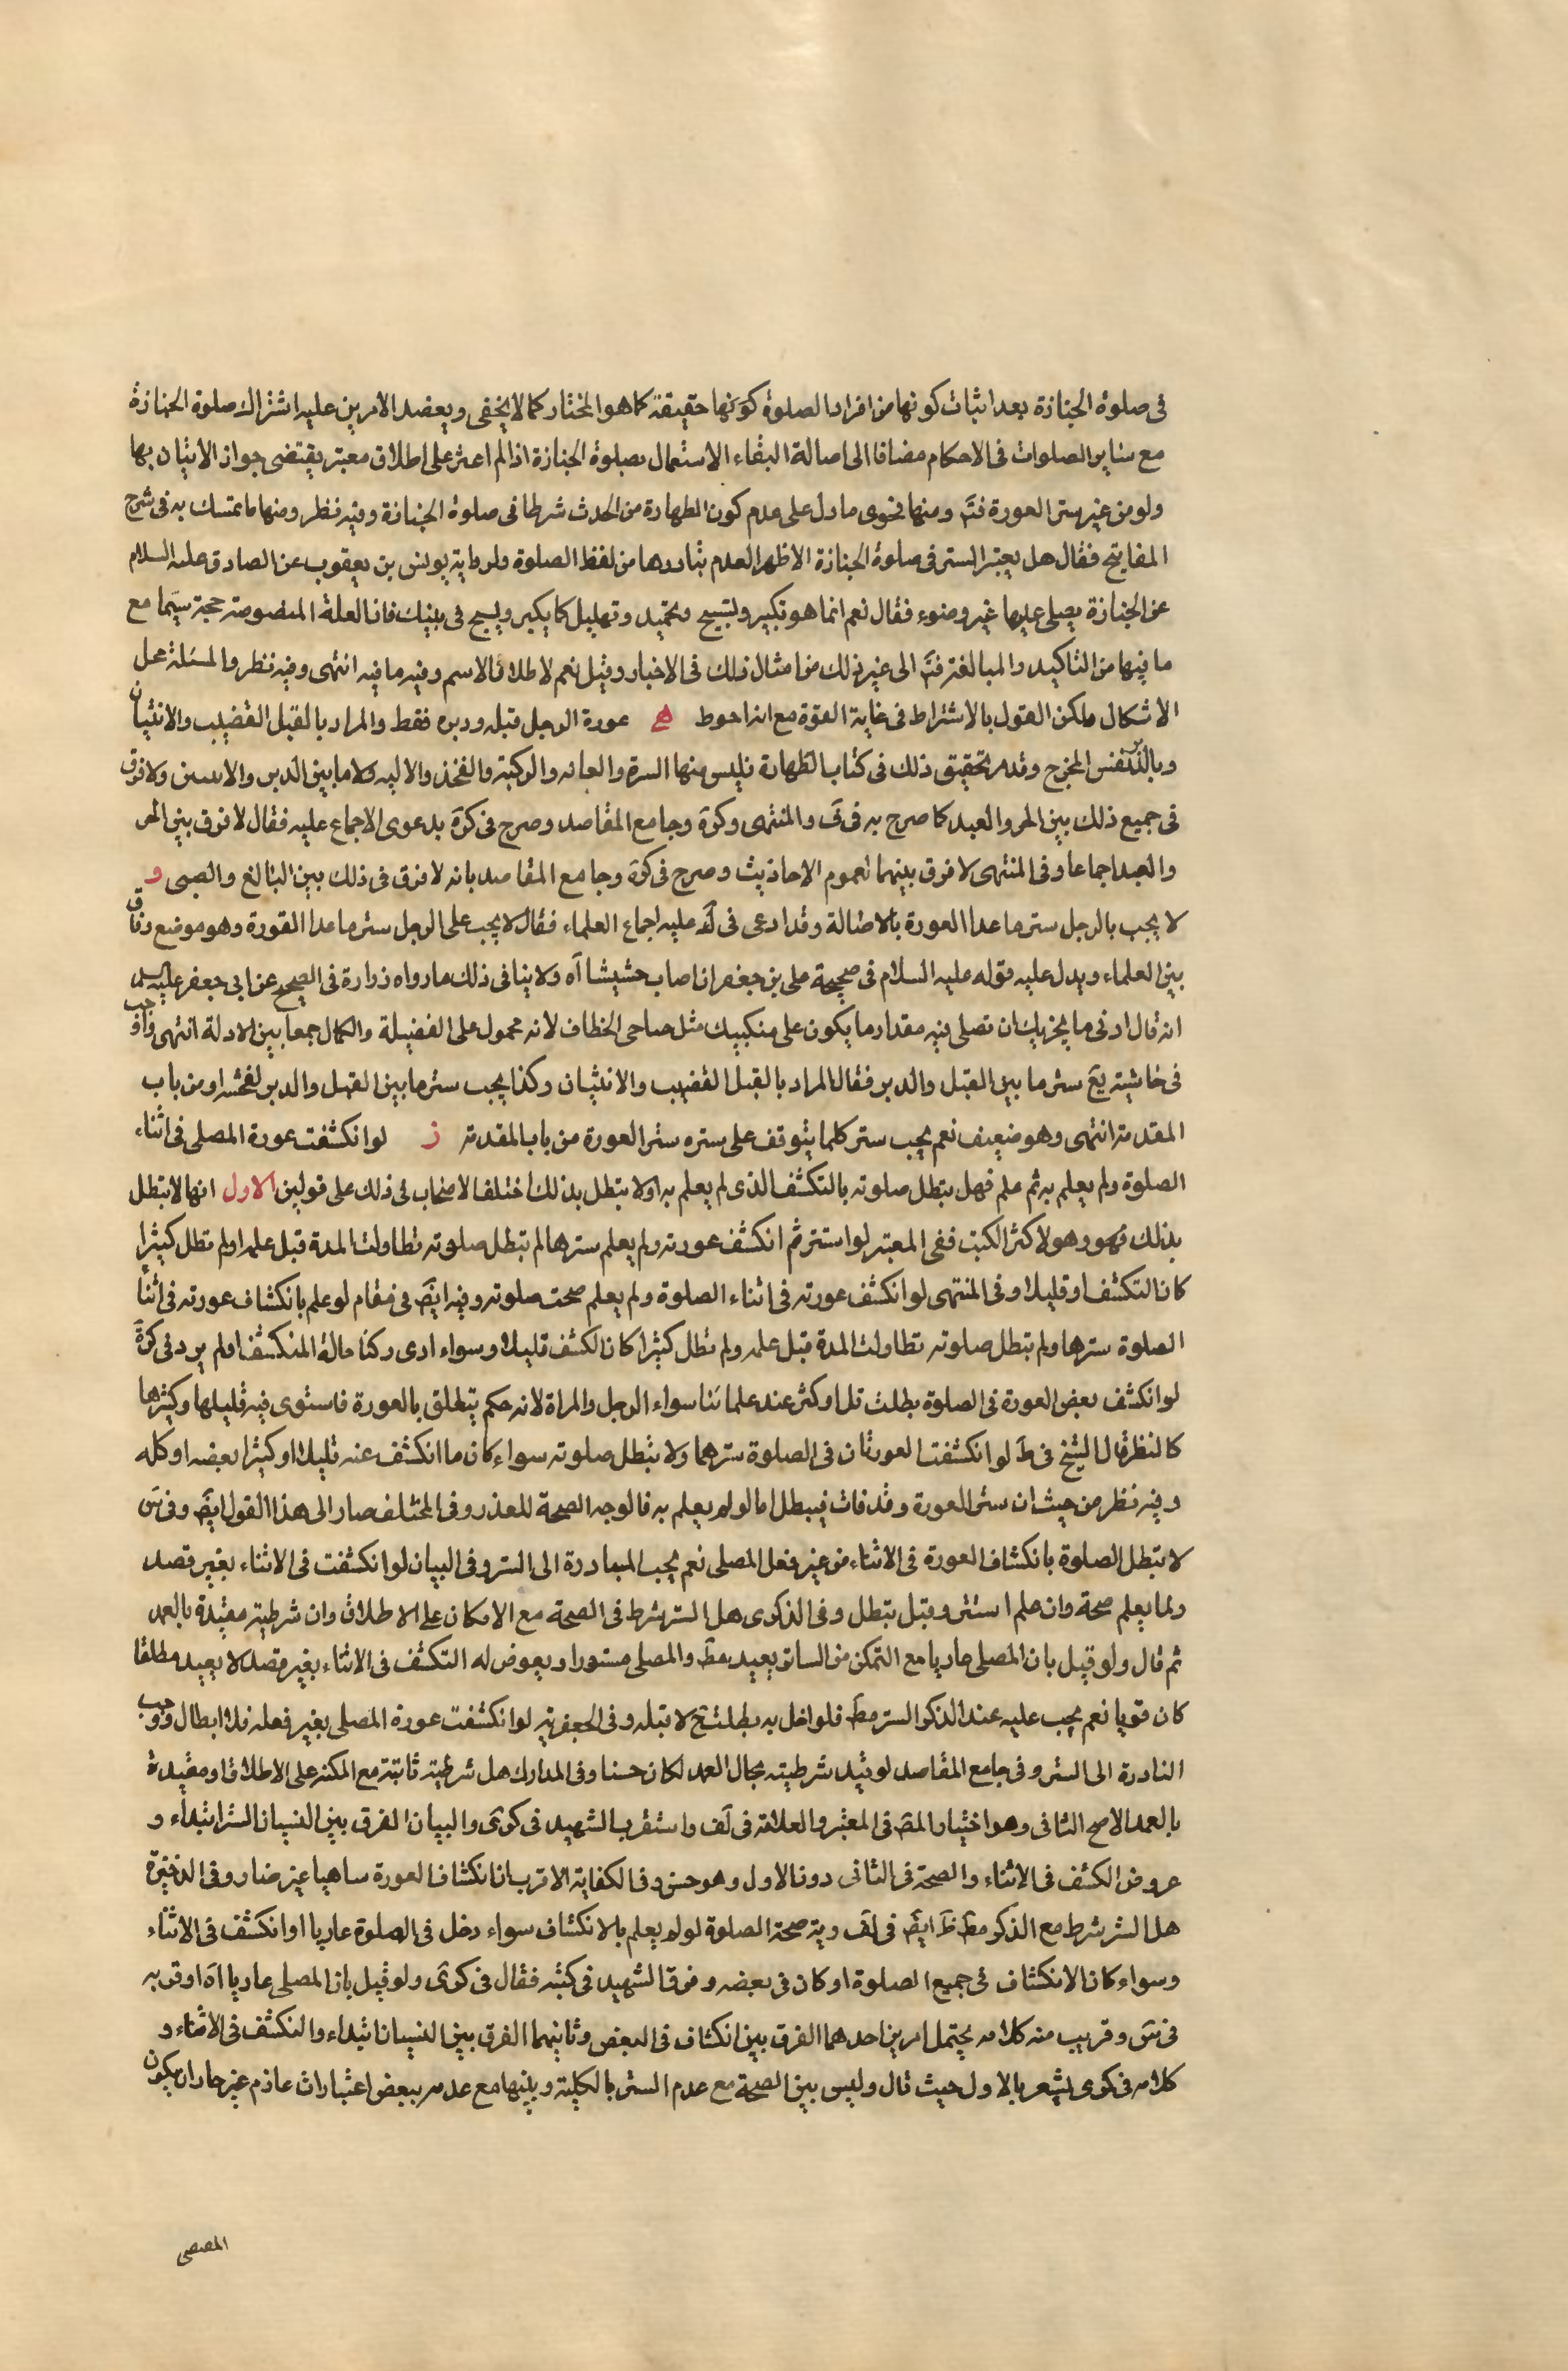 فى صلوة الجنازة بعد اثبات كونها من افراد الصلوة كونها حقيقة كما هو المختار كما لا يخفى و يعضد الامرين عليه اشتراك صلوة الجنازة
مع ساير الصلوات فى الاحكام مضافا الى اصالة البقاء الاستعمال بصلوة الجنازة اذا لم اعثر على اطلاق معتبر يقتضى جواز الاتيان بها
ولو من غير ستر العورة فتم ومنها فحوى ما دل على عدم كون الطهارة من الحدث شرطا فى صلوة الجنازة وفيه نظر ومنها ما تمسك به فى شرح
المفاتيح فقال هل يعتبر الستر فى صلوة الجنازة الاظهر العدم بتادرها من لفظ الصلوة ولرواية يونس بن يعقوب عن الصادق عليه السلام
عن الجنازة يصلى عليها غير وضوء فقال نعم انما هو تكبير وتسبيح وتحميد وتهليل كما يكبر ويسبح فى بيتك فان العلة المنصوصة حجة سيّما مع
ما فيها من التاكيد والمبالغة فتم الى غير ذلك من امثال ذلك فى الاخبار وقيل نعم لاطلاق الاسم وفيه ما فيه انتهى وفيه نظر والمسئلة محل
الاشكال ولكن القول بالاشتراط فى غاية القوة مع انه احوط ه عورة الرجل قبله ودبره فقط والمراد بالقبل القضيب والانثيان
وبالدبر نفس المخرج وقد مر تحقيق ذلك فى كتاب الطهارة فليس منها السرة والعانه والركبة والفخذ والاليه ولا ما بين الدبر والانثيين ولا فرق
فى جميع ذلك بين الحر والعبد كما صرح به فى ف والمنتهى وكرة وجامع المقاصد وصرح فى كرة بدعوى الاجماع عليه فقال لا فرق بين الحر
والعبد اجماعا وفى المنتهى لا فرق بينهما لعموم الاحاديث وصرح فى كرة وجامع المقاصد بانه لا فرق فى ذلك بين البالغ والصبى و
لا يجب بالرجل ستر ما عدا العورة بالاصالة وقد ادعى فى عليه اجماع العلماء فقال لا يجب على الرجل ستر ما عدا العورة وهو موضع وفاق
بين العلماء ويدل عليه قوله عليه السلام فى صحيحة على بن جعفر ان اصاب حشيشا آه ولا ينافى ذلك ما رواه زرارة فى الصحيح عن ابى جعفر عليه السلام
انه قال ادنى ما يجزيك ان تصلى فيه مقدار ما يكون على منكبيك مثل جناحى الخطاف لانه محمول على الفضيلة والكمال جمعا بين الادلة انتهى واوجب
فى حاشية يع ستر ما بين القبل والدبر فقال المراد بالقبل القضيب والانثيان وكذا يجب ستر ما بين القبل والدبر لفحشه او من باب
المقدمة انتهى وهو ضعيف نعم يجب ستر كلما يتوقف على ستره ستر العورة من باب المقدمة ز لو انكشفت عورة المصلى فى اثناء
الصلوة ولم يعلم به ثم علم فهل يبطل صلوته بالتكشف الذى لم يعلم به او لا يبطل بذلك اختلف الاصحاب فى ذلك على قولين الاول انها لا يبطل
بذلك فهو وهو لاكثر الكتب ففى المعتبر لو استتر ثم انكشف عورته ولم يعلم سترها لم يبطل صلوته تطاولت المدة قبل علمه او لم تطل كثيرا
كان التكشف او قليلا وفى المنتهى لو انكشف عورته فى اثناء الصلوة ولم يعلم صحت صلوته وفيه ايض فى مقام لو علم بانكشاف عورته فى اثنا
الصلوة سترها ولم تبطل صلوته تطاولت المدة قبل علمه ولم تطل كثيرا كان الكشف قليلا وسواء ادى ركنا حالة المنكشف او لم يود فى كرة
لو انكشف بعض العورة فى الصلوة بطلت قل او كثر عند علمائنا سواء الرجل والمراة لانه حكم يتعلق بالعورة فاستوى فيه قليلها وكثيرها
كالنظر قال الشيخ فى ط لو انكشفت العورتان فى الصلوة سترهما ولا تبطل صلوته سواء كان ما انكشف عنه قليلا او كثيرا بعضه او كله
وفيه نظر من حيث ان ستر العورة وقد فات فيبطل اما لو لم يعلم به فالوجه الصحة للعذر وفى المختلف صار الى هذا القول ايض وفى س
لا تبطل الصلوة بانكشاف العورة فى الاثناء من غير فعل المصلى نعم يجب المبادرة الى الستر وفى البيان لو انكشفت فى الاثناء بغير قصد
ولما يعلم صحة وان علم استتر وقيل تبطل وفى الذكرى هل الستر شرط فى الصحة مع الامكان على الاطلاق وان شرطيته مقيدة بالعمد
ثم قال ولو قيل بان المصلى عاريا مع التمكن من الساتر يعيد مط والمصلى مستورا ويعرض له التكشف فى الاثناء بغير قصد لا يعيد مطلقا
كان قويا نعم يجب عليه عند الذكر الستر مط فلو اخل به بطلت ح لا قبله وفى الجعفرية لو انكشفت عورة المصلى بغير فعله فلا ابطال ووجب
البادرة الى الستر وفى جامع المقاصد لو قيد شرطيته بحال العمد لكان حسنا وفى المدارك هل شرطيته ثابتة مع المكنة على الاطلاق او مقيدة
بالعمد الاصح الثانى وهو اختيار المص فى المعتبر والعلامة فى لف واستقرب الشهيد فى كرى والبيان الفرق بين النسيان الستر ابتداء و
عروض الكشف فى الاثناء والصحة فى الثانى دون الاول وهو حسن وفى الكفاية الاقرب ان انكشاف العورة ساهيا غير ضار وفى الذخيرة
هل الستر شرط مع الذكر مط ظ ايض فى لف وية صحة الصلوة لو لم يعلم بالانكشاف سواء دخل فى الصلوة عاريا او انكشف فى الاثناء
وسواء كان الانكشاف فى جميع الصلوة او كان فى بعضه وفرق الشهيد فى كتبه فقال فى كرى ولو قيل بان المصلى عاريا آه او قربه
فى س وقريب منه كلامه يحتمل امرين احدهما الفرق بين انكشاف فى البعض وثانيهما الفرق بين النسيان ابتداء والتكشف فى الاثناء و
كلامه فى كرى يشعر بالاول حيث قال وليس بين الصحة مع عدم الستر بالكلية وبينها مع عدمه ببعض اعتبارات عاذم غير جاز ان يكون
المصصى